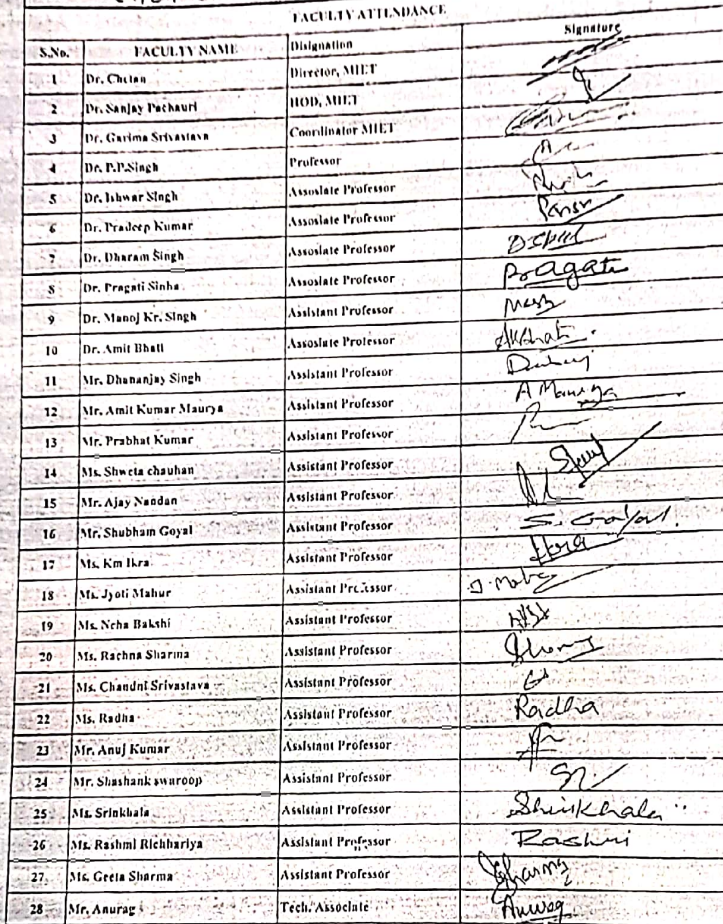 FACULTY ATTENDANCE
S.No. FACULTY NAME Disignation Signature
1 Dr. Chetan Director, MIET
2 Dr. Sanjay Pachauri HOD, MIET
3 Dr. Garima Srivastava Coordinator MIET
4 Dr. P.P.Singh Professor
5 Dr. Ishwar Singh Assosiate Professor
6 Dr. Pradeep Kumar Assosiate Professor
7 Dr. Dharam Singh Assosiate Professor
8 Dr. Pragati Sinha Assosiate Professor Pragati
9 Dr. Manoj Kr. Singh Assistant Professor
10 Dr. Amit Bhati Assosiate Professor
11 Mr. Dhananjay Singh Assistant Professor
12 Mr. Amit Kumar Maurya Assistant Professor A Maurya
13 Mr. Prabhat Kumar Assistant Professor
14 Ms. Shweta chauhan Assistant Professor
15 Mr. Ajay Nandan Assistant Professor
16 Mr. Shubham Goyal Assistant Professor S. Goyal.
17 Ms. Km Ikra Assistant Professor Ikra
18 Ms. Jyoti Mahur Assistant Professor
19 Ms. Neha Bakshi Assistant Professor
20 Ms. Rachna Sharma Assistant Professor
21 Ms. Chandni Srivastava Assistant Professor
22 Ms. Radha Assistant Professor Radha
23 Mr. Anuj Kumar Assistant Professor
24 Mr. Shashank swaroop Assistant Professor
25 Ms. Srinkhala Assistant Professor Shrinkhala
26 Ms. Rashmi Richhariya Assistant Professor Rashmi
27 Ms. Geeta Sharma Assistant Professor GSharma
28 Mr. Anurag Tech. Associate Anurag